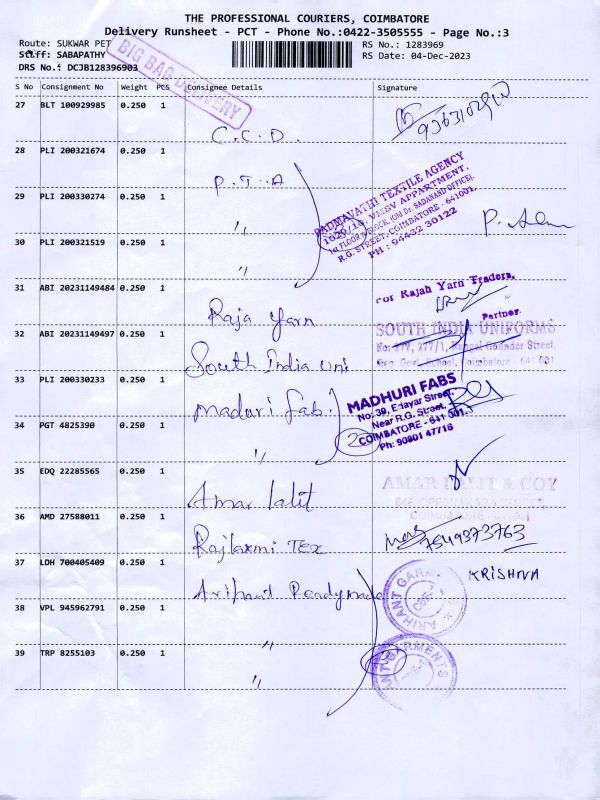 THE PROFESSIONAL COURIERS, COIMBATORE
Delivery Runsheet - PCT - Phone No.:0422-3505555 - Page No.:3
Route: SUKWAR PET
RS No.: 1283969
Staff: SABAPATHY
RS Date: 04-Dec-2023
DRS No.: DCJB128396903
BIG BAG DELIVERY
S No Consignment No Weight PCS Consignee Details Signature
27 BLT 100929985 0.250 1 C.C.D.
28 PLI 200321674 0.250 1 P.T.A
PADMAVATHI TEXTILE AGENCY
VSV APPARTMENT,
1st FLOOR, BLOCK, (Old Dr. SADANAND OFFICE),
R.G. STREET, COIMBATORE - 641001.
PH : 94432 30122
29 PLI 200330274 0.250 1 "
30 PLI 200321519 0.250 1 "
31 ABI 20231149484 0.250 1 Raja Yarn
For Rajah Yarn Traders,
Partner.
32 ABI 20231149497 0.250 1 South India Uni
SOUTH INDIA UNIFORMS
No: 277, 277/1, Gounder Street,
Govt. School, Coimbatore - 641 001
33 PLI 200330233 0.250 1 Maduri fab.
MADHURI FABS
No: 39, Edayar Street,
Near R.G. Street,
COIMBATORE - 641 001.
Ph: 90801 47716
2
34 PGT 4825390 0.250 1 "
35 EDQ 22285565 0.250 1 Amar lalit
AMAR LALIT & COY
36 AMD 27588011 0.250 1 Rajlaxmi Tex 7549373763
37 LDH 700405409 0.250 1 Arihant Readymade KRISHNA
ARIHANT GARMENTS
38 VPL 945962791 0.250 1 "
39 TRP 8255103 0.250 1 "